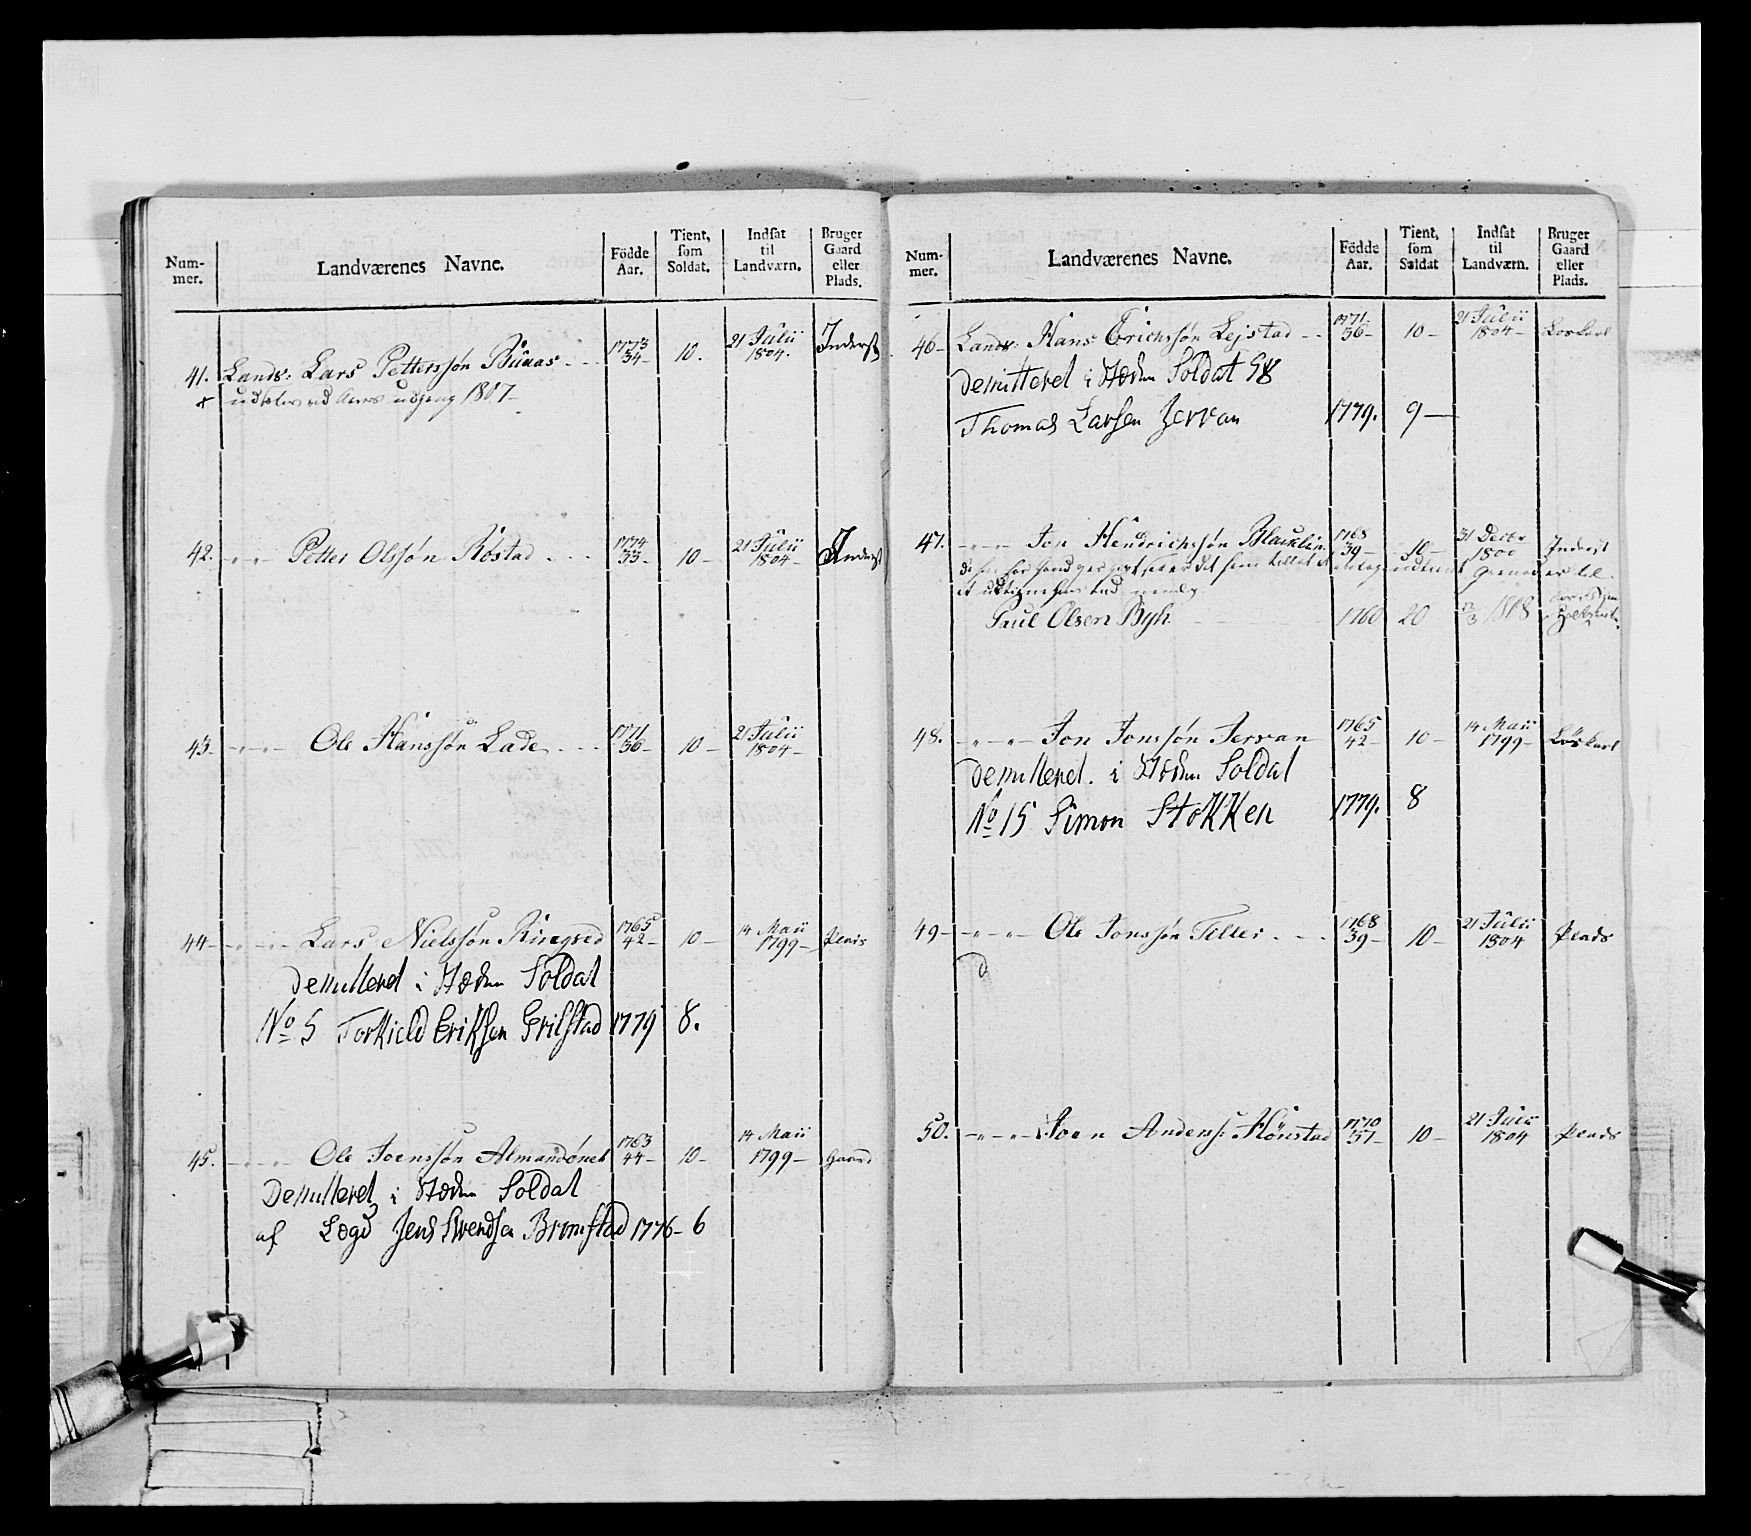 Num-
mer.
Landværenes Navne.
Födde
Aar.
Tient,
som
Soldat.
Indsat
til
Landværn.
Bruger
Gaard
eller
Plads.
41. Lands: Lars Petterssøn 1773 34- 10. 21 Julii 1804. Inderst
+ ved Aars udgang 1807-
42. -"-"- Petter Olssøn Røstad 1774 33- 10- 21 Julii 1804- Inderst
43- -"-"- Ole Hanssøn Lade 1771 36- 10- 21 Julii 1804-
44- -"-"- Lars Nielssøn Ringved 1765 42- 10- 14 Maii 1799- Plads
demitteret i Stæden Soldat
No 5 Torkield Eriksen Grilstad 1779 8.
45. -"-"- Ole Joenssøn 1763 44- 10- 14 Maii 1799- Gaard
Demitteret i Stæden Soldat
af Lægd Jens Svendsen Bromstad 1776- 6
Num-
mer.
Landværenes Navne.
Födde
Aar.
Tient,
som
Soldat
Indsat
til
Landværn.
Bruger
Gaard
eller
Plads.
46- Lands: Hans Erichssøn Lejstad 1771 36- 10- 21 Julii 1804- Løskarl
demitteret i Stæden Soldat
Thomas Larsen Jervan 1779. 9-
47. -"-"- Jon Hendrichssøn 1768 39- 10- 31 Decbr 1800 Inderst
Paul Olsen Byh 1760 20 1808
48. -"-"- Jon Jonssøn Jervan 1765 42- 10- 14 Maii 1799- Løskarl
demitteret. i Stæden Soldat
No 15 Simon Stokken 1779. 8
49- -"-"- Ole Jonssøn Teller 1768 39- 10- 21 Julii 1804 Plads
50. -"-"- Joen Anders: 1770 37- 10- 21 Julii 1804 Plads